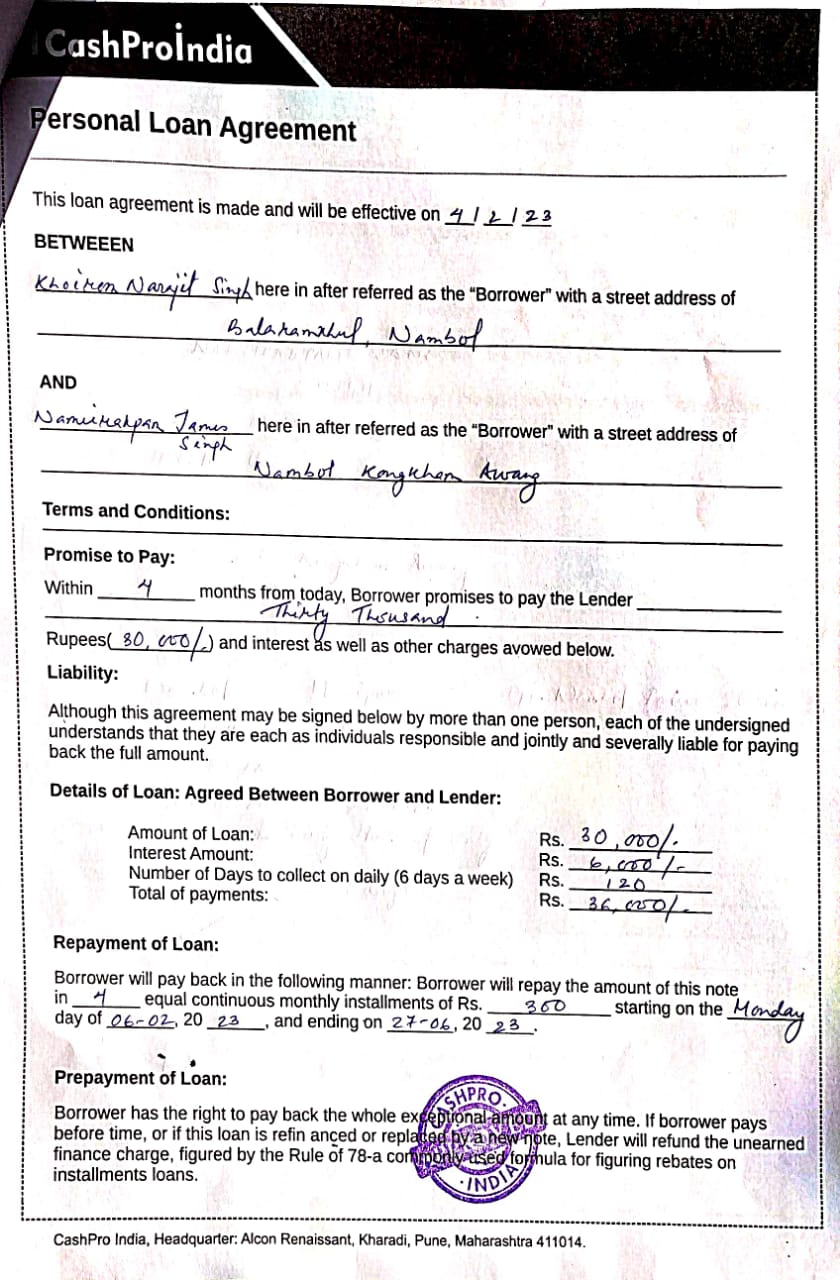 CashProIndia
Personal Loan Agreement
This loan agreement is made and will be effective on 4/2/23
BETWEEEN
Narajit Singh here in after referred as the “Borrower” with a street address of
Nambol
AND
James here in after referred as the “Borrower” with a street address of
Singh
Nambol Kongkham Awang
Terms and Conditions:
Promise to Pay:
Within 4 months from today, Borrower promises to pay the Lender
Thirty Thousand
Rupees( 30,000/-) and interest as well as other charges avowed below.
Liability:
Although this agreement may be signed below by more than one person, each of the undersigned
understands that they are each as individuals responsible and jointly and severally liable for paying
back the full amount.
Details of Loan: Agreed Between Borrower and Lender:
Amount of Loan: Rs. 30,000/-
Interest Amount: Rs. 6,000/-
Number of Days to collect on daily (6 days a week) Rs. 120
Total of payments: Rs. 36,000/-
Repayment of Loan:
Borrower will pay back in the following manner: Borrower will repay the amount of this note
in 4 equal continuous monthly installments of Rs. 300 starting on the Monday
day of 06-02, 20 23, and ending on 27-06, 20 23.
Prepayment of Loan:
Borrower has the right to pay back the whole exceptional amount at any time. If borrower pays
before time, or if this loan is refin anced or replaced by a new note, Lender will refund the unearned
finance charge, figured by the Rule of 78-a commonly used formula for figuring rebates on
installments loans.
CASHPRO.
INDIA
CashPro India, Headquarter: Alcon Renaissant, Kharadi, Pune, Maharashtra 411014.